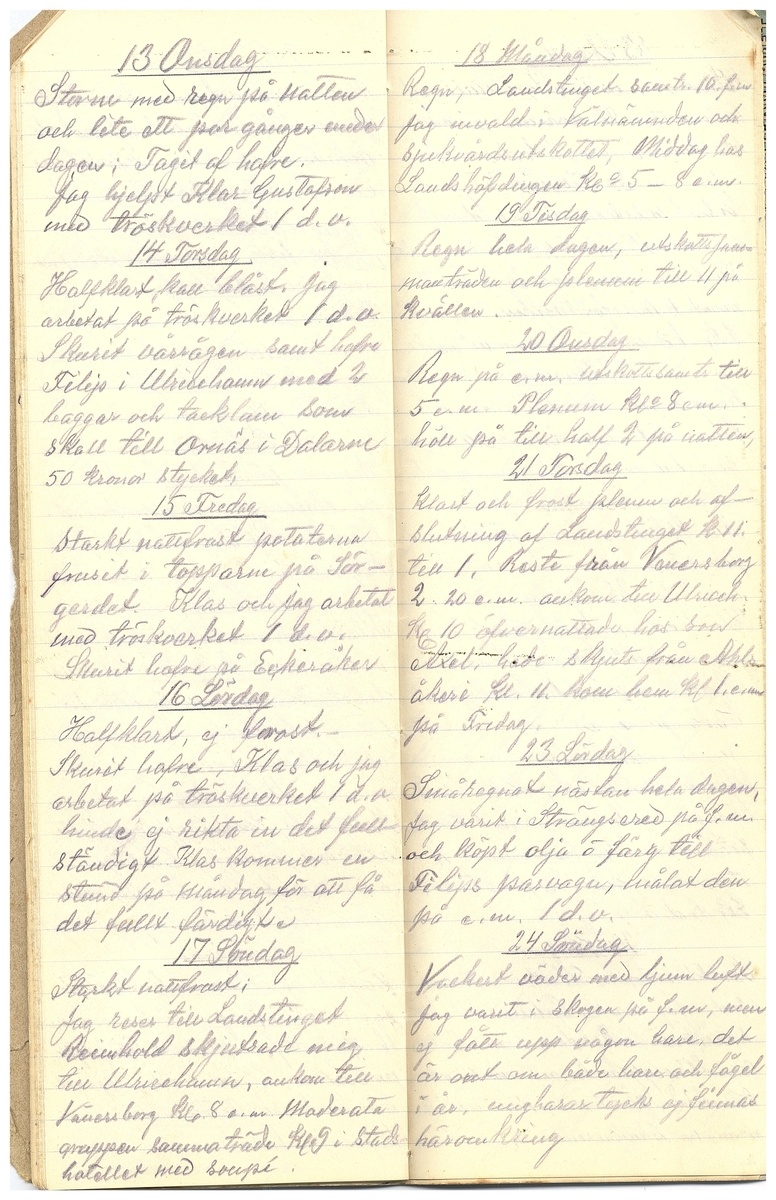 13 Onsdag
Storm med regn på natten
och lite ett par gånger under
dagen; Tagit af hafre.
Jag hjelpt Klas Gustafson
med tröskverket 1 d.v.
14 Torsdag
Halfklart, kall blåst. Jag
arbetat på tröskverket 1 d.v.
Skurit vårrågen samt hafre
Filip i Ulricehamn med 2
baggar och tacklam som
skall till Ornäs i Dalarne
50 kronor stycket.
15 Fredag
Starkt nattfrost potaterna
frusit i topparne på Sör-
gerdet. Klas och jag arbetat
med tröskverket 1 d.v.
Skurit hafre på Ekeråker
16 Lördag
Halfklart, ej frost.-
Skurit hafre, Klas och jag
arbetat på tröskverket 1 d.v.
hinde ej rikta in det full-
ständigt Klas kommer en
stund på måndag för att få
det fullt färdigt
17 Söndag
Starkt nattfrost;
Jag reser till Landstinget
Reinhold skjutsade mig
till Ulricehamn, ankom till
Vänersborg Kl. 8 e.m. Moderata
gruppen sammaträde Kl 9 i Stads-
hotellet med soupé.
18 Måndag
Regn, Landstinget samtr. 10 f.m
jag invald i Valnämnden och
sjukvårdsutskottet, Middag hos
Landshöfdingen Klo 5 - 8 e.m.
19 Tisdag
Regn hela dagen, utskotts sam-
manträden och plenum till 11 på
kvällen.
20 Onsdag
Regn på e.m. utskottssamtr till
5 e.m. Plenum Klo 8 e.m.
höll på till half 2 på natten,
21 Torsdag
Klart och frost plenum och af-
slutning af Landstinget kl 11.
till 1. Reste från Vänersborg
2.20 e.m. ankom till Ulriceh.
Kl 10 öfvernattade hos
Axel, hade skjuts från
åkeri Kl. 11. kom hem Kl 1. e.m
på Fredag.
23 Lördag
Småregnat nästan hela dagen,
Jag varit i Strängsered på f.m.
och köpt olja ö färg till
Filips parvagn, målat den
på e.m. 1 d.v.
24 Söndag.
Vackert väder med ljum luft
jag varit i skogen på f.m, men
ej fått upp någon hare, det
är ont om både hare och fågel
i år, ungharar tycks ej finnas
häromkring